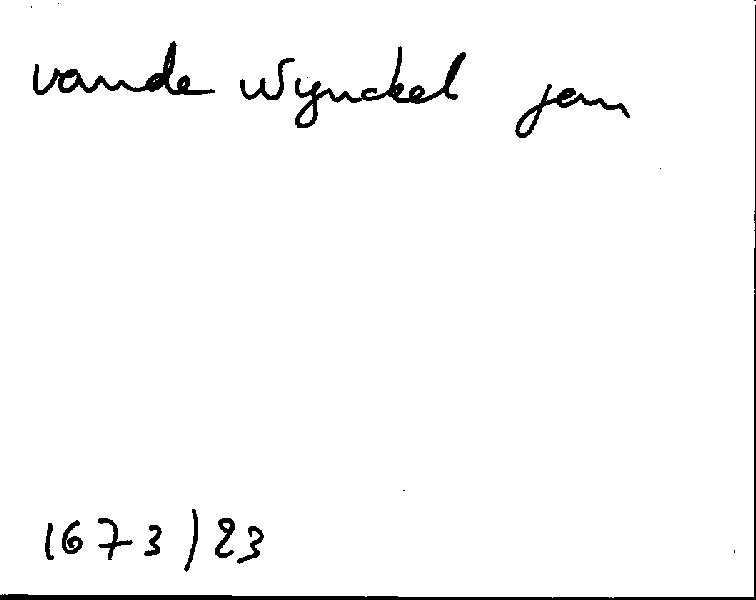 vande Wynckel jan
1673/23